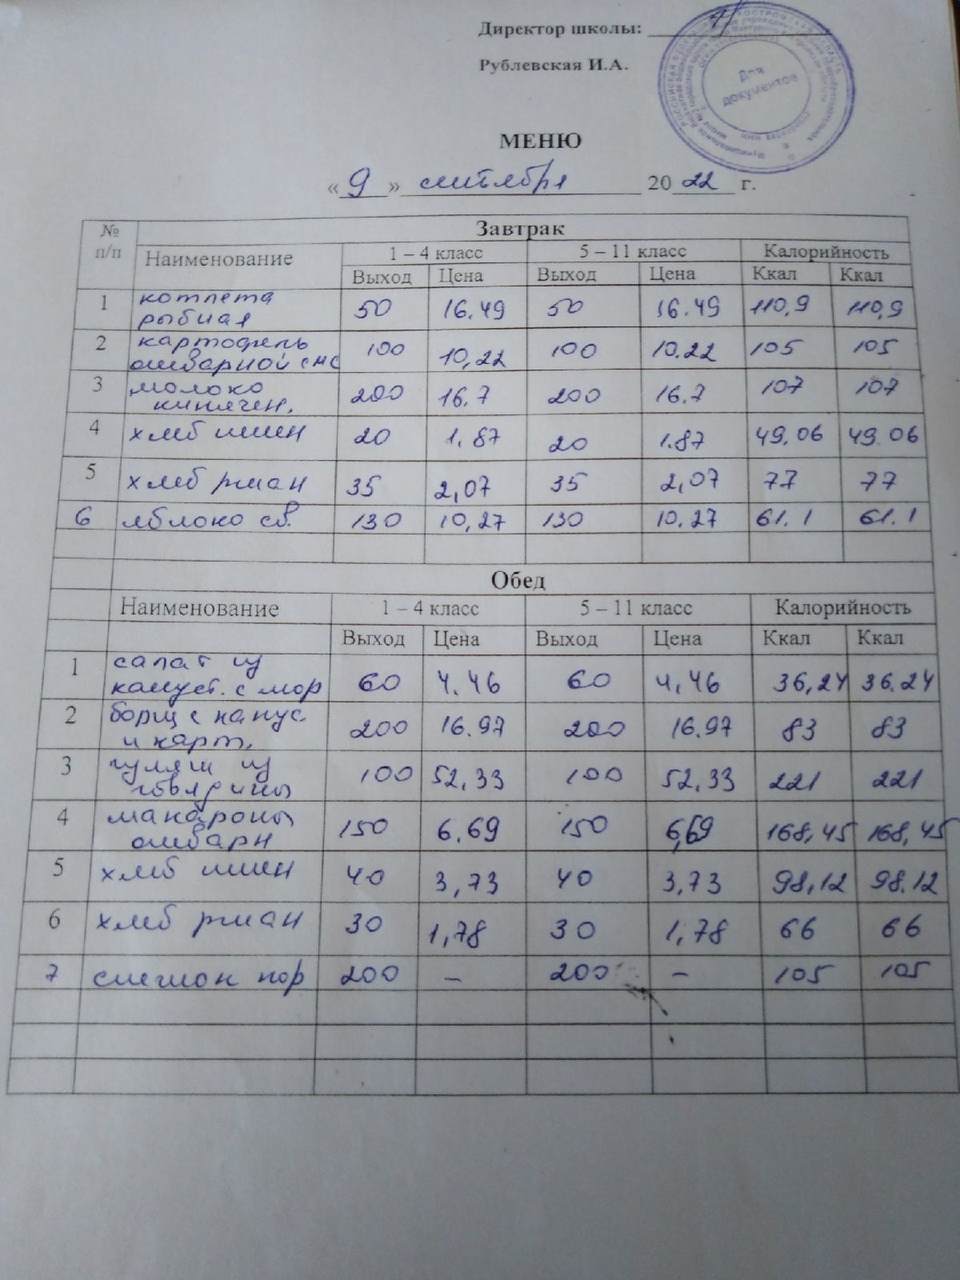 Директор школы:
Рублевская И.А.
Для
документов
МЕНЮ
« 9 » сентября 2022 г.
№ п/п Завтрак
Наименование 1 – 4 класс 5 – 11 класс Калорийность
Выход Цена Выход Цена Ккал Ккал
1 котлета рыбная 50 16.49 50 16.49 110,9 110,9
2 картофель отварной с м 100 10,22 100 10.22 105 105
3 молоко кипячен. 200 16.7 200 16.7 107 107
4 хлеб пшен 20 1,87 20 1.87 49,06 49.06
5 хлеб ржан 35 2,07 35 2,07 77 77
6 яблоко св. 130 10,27 130 10.27 61.1 61.1
Обед
Наименование 1 – 4 класс 5 – 11 класс Калорийность
Выход Цена Выход Цена Ккал Ккал
1 салат из капуст. с мор 60 4.46 60 4,46 36,24 36.24
2 борщ с капус. и карт. 200 16.97 200 16.97 83 83
3 гуляш из говядины 100 52,33 100 52,33 221 221
4 макароны отварн 150 6.69 150 6,69 168,45 168,45
5 хлеб пшен 40 3,73 40 3,73 98,12 98.12
6 хлеб ржан 30 1,78 30 1,78 66 66
7 снежок пор 200 – 200 – 105 105